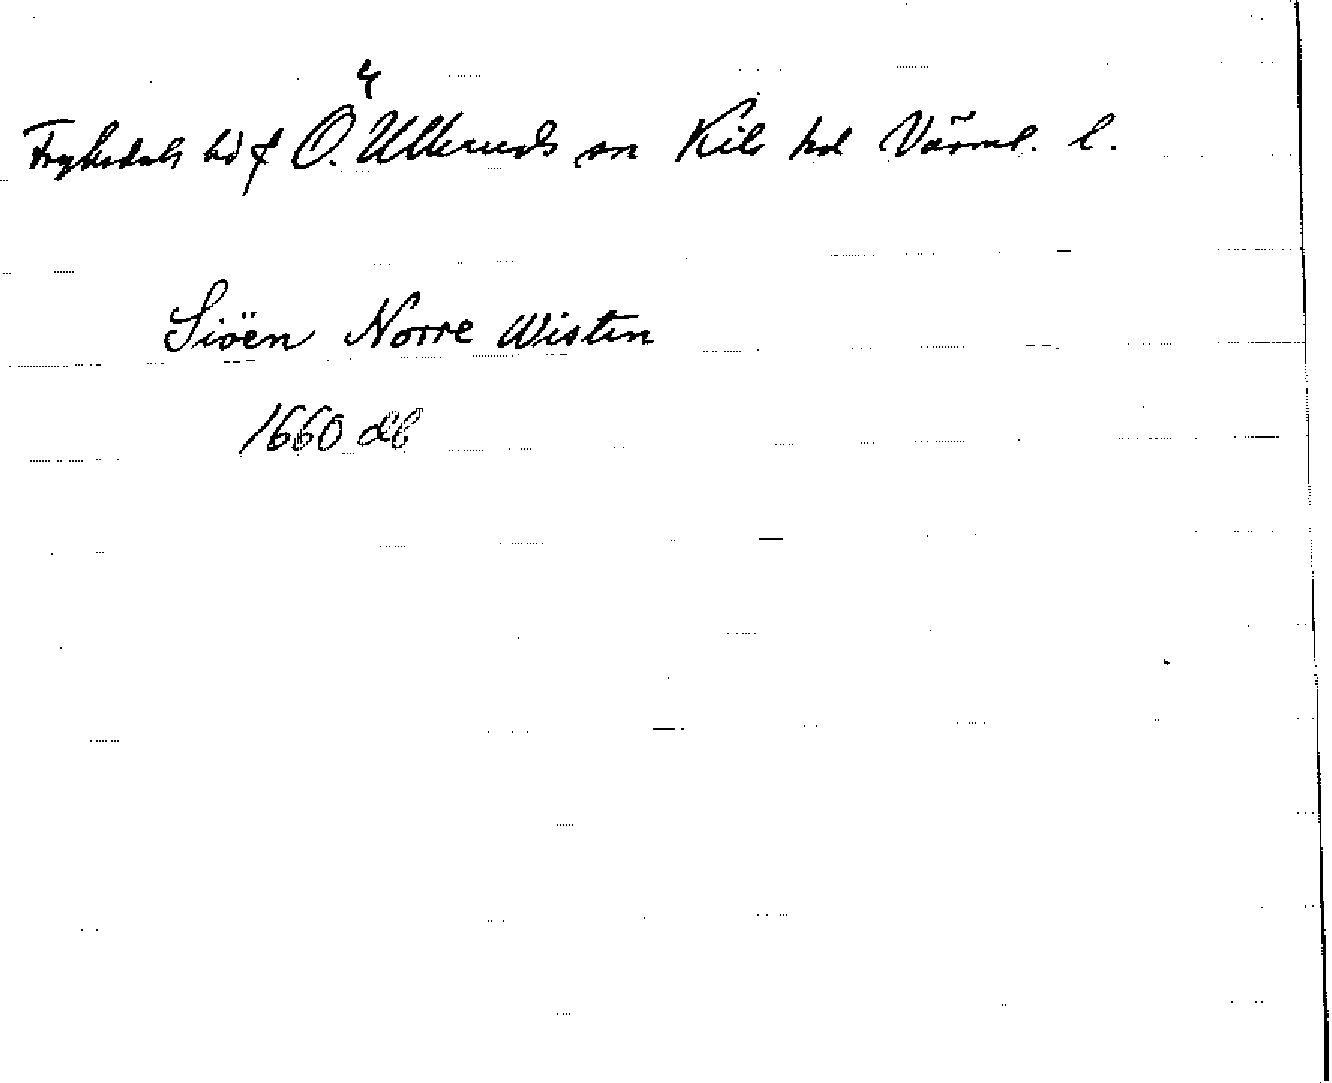 Fryksdals hd f Ö. Ulleruds sn Kils hd Värml. l.
Siöen Norre Wisten
1660 db